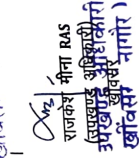 राजकेश मीना RAS
(उपखण्ड अधिकारी)
उपखण्ड अधिकारी
खींवसर
खींवसर ( नागौर )